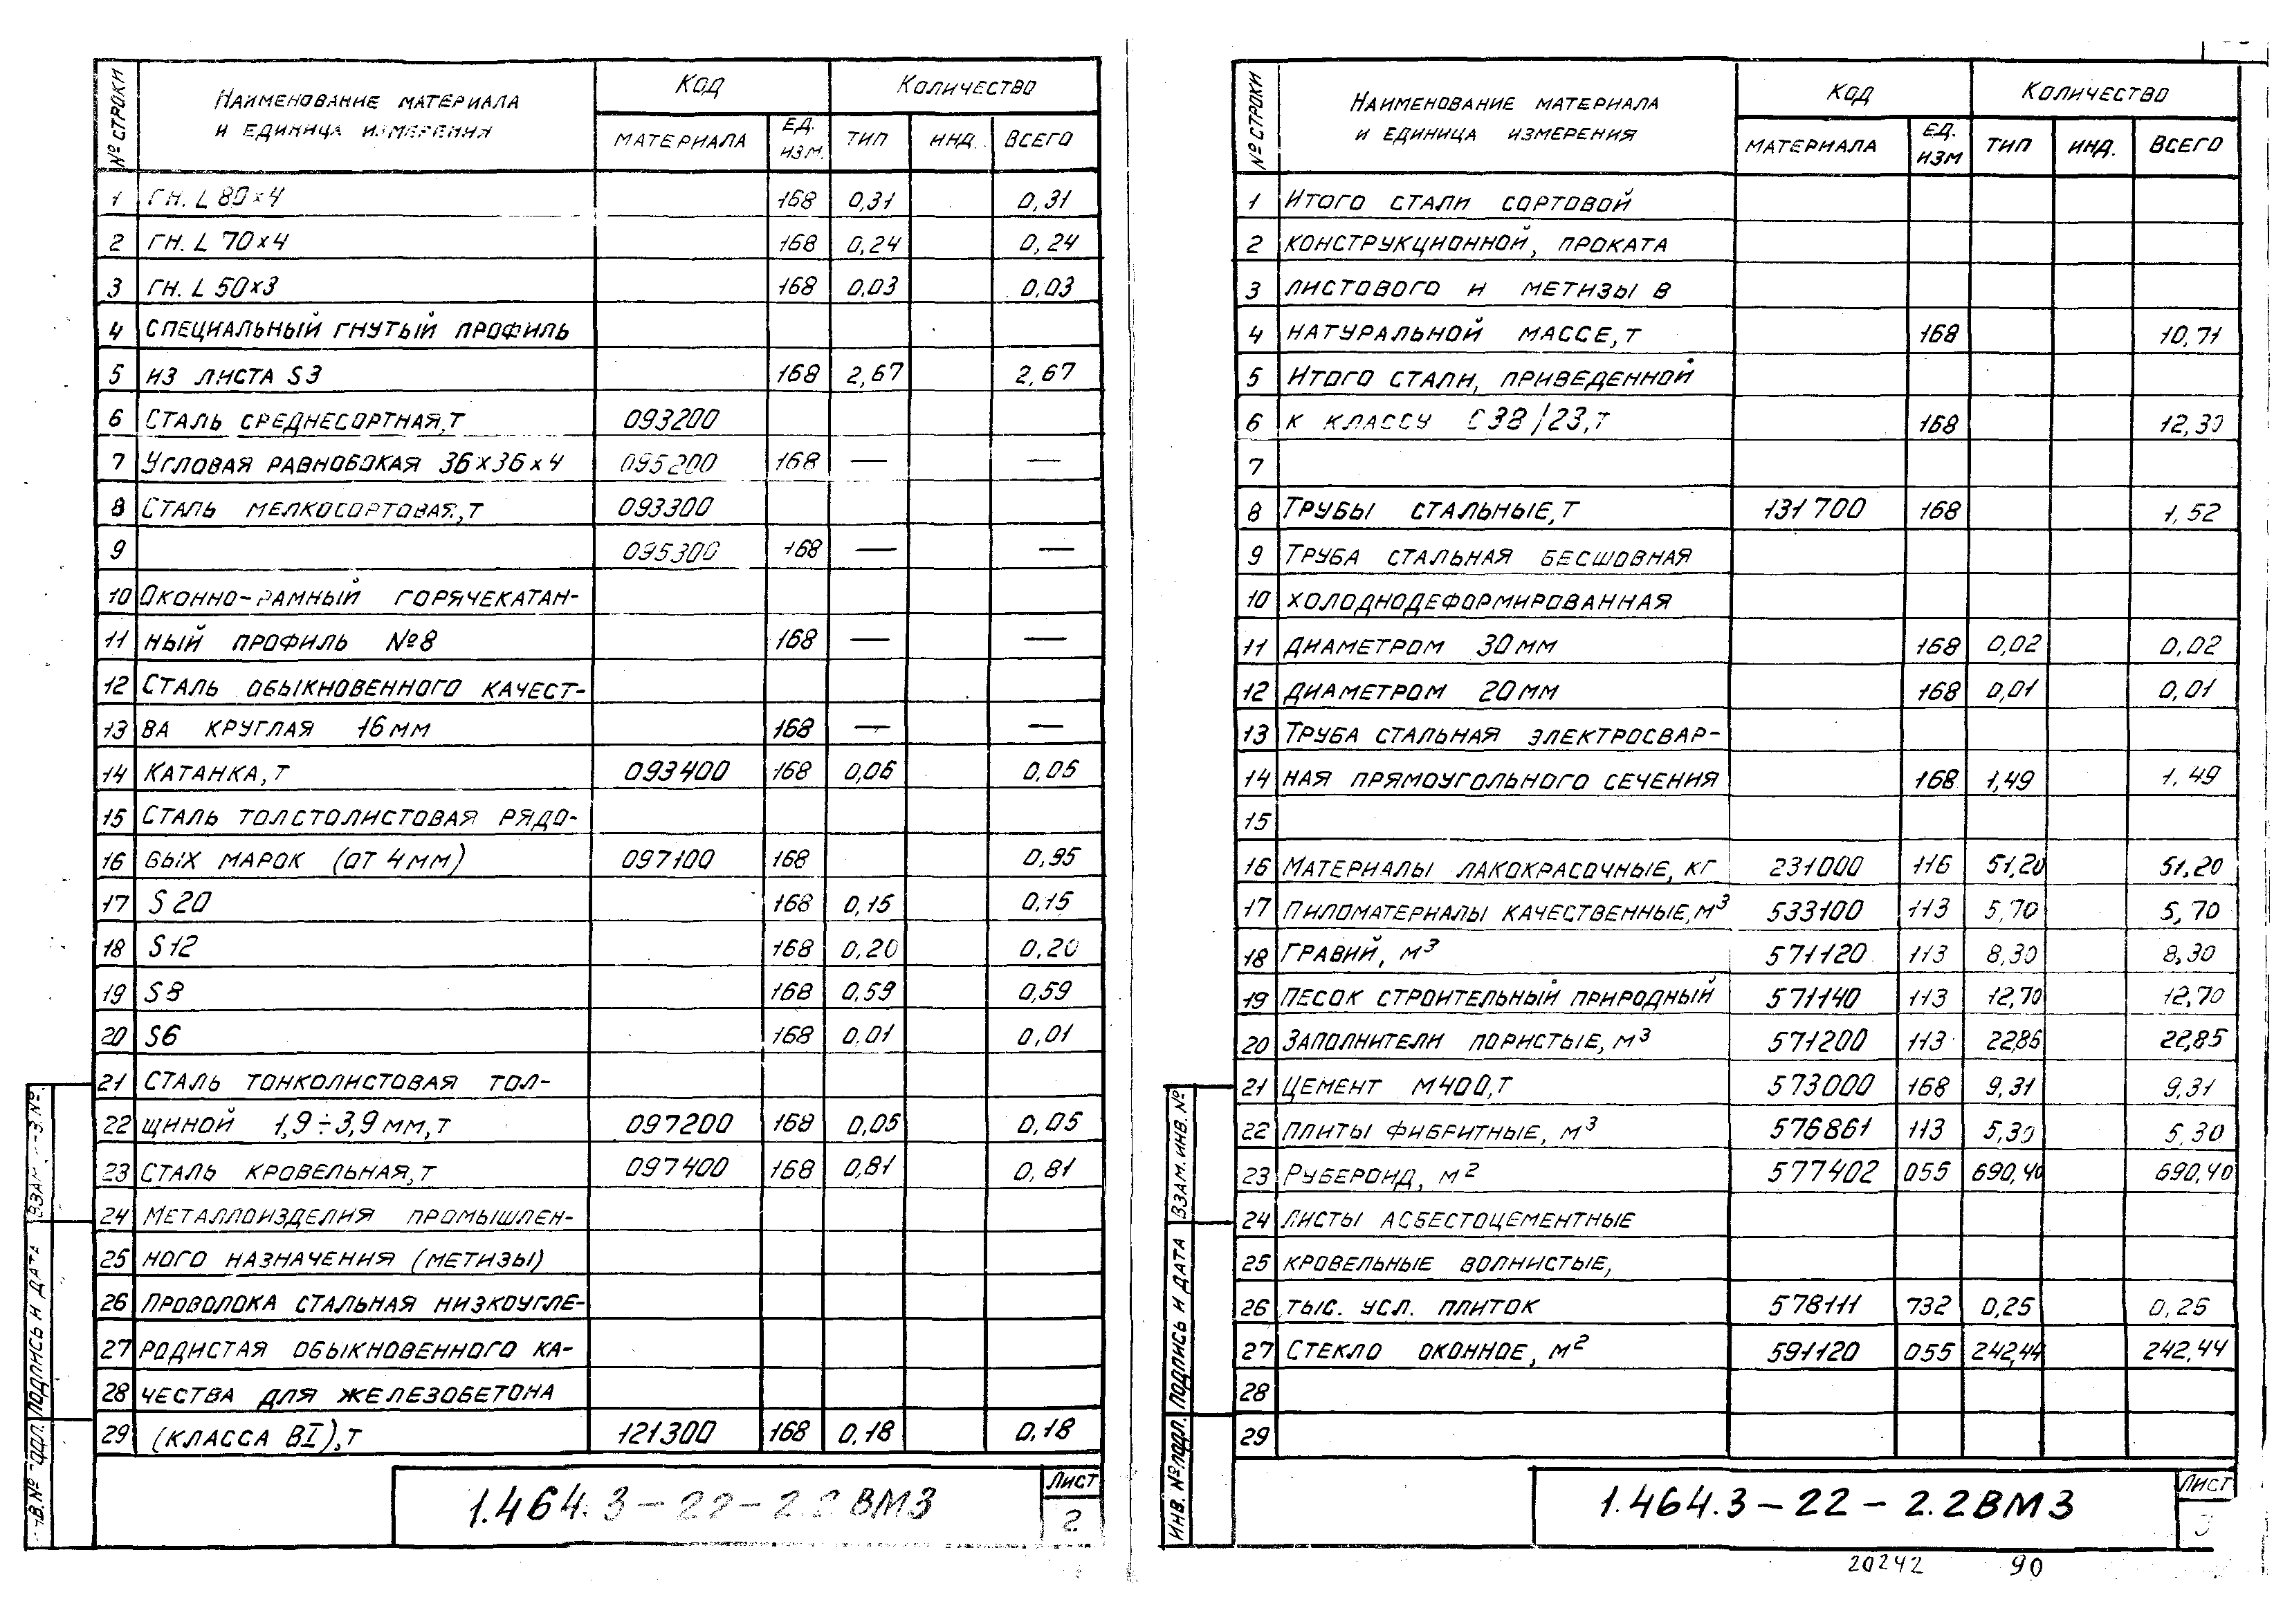 № СТРОКИ НАИМЕНОВАНИЕ МАТЕРИАЛА И ЕДИНИЦА ИЗМЕРЕНИЯ КОД КОЛИЧЕСТВО
МАТЕРИАЛА ЕД. ИЗМ. ТИП ИНД. ВСЕГО
1 ГН. L 80×4 168 0,31 0,31
2 ГН. L 70×4 168 0,24 0,24
3 ГН. L 50×3 168 0,03 0,03
4 СПЕЦИАЛЬНЫЙ ГНУТЫЙ ПРОФИЛЬ
5 ИЗ ЛИСТА S3 168 2,67 2,67
6 СТАЛЬ СРЕДНЕСОРТНАЯ,Т 093200
7 УГЛОВАЯ РАВНОБОКАЯ 36×36×4 095200 168 — —
8 СТАЛЬ МЕЛКОСОРТОВАЯ,Т 093300
9 095300 168 — —
10 ОКОННО-РАМНЫЙ ГОРЯЧЕКАТАН-
11 НЫЙ ПРОФИЛЬ №8 168 — —
12 СТАЛЬ ОБЫКНОВЕННОГО КАЧЕСТ-
13 ВА КРУГЛАЯ 16мм 168 — —
14 КАТАНКА,Т 093400 168 0,06 0,06
15 СТАЛЬ ТОЛСТОЛИСТОВАЯ РЯДО-
16 ВЫХ МАРОК (ОТ 4мм) 097100 168 0,95
17 S 20 168 0,15 0,15
18 S12 168 0,20 0,20
19 S8 168 0,59 0,59
20 S6 168 0,01 0,01
21 СТАЛЬ ТОНКОЛИСТОВАЯ ТОЛ-
22 ЩИНОЙ 1,9÷3,9 мм,Т 097200 168 0,05 0,05
23 СТАЛЬ КРОВЕЛЬНАЯ,Т 097400 168 0,81 0,81
24 МЕТАЛЛОИЗДЕЛИЯ ПРОМЫШЛЕН-
25 НОГО НАЗНАЧЕНИЯ (МЕТИЗЫ)
26 ПРОВОЛОКА СТАЛЬНАЯ НИЗКОУГЛЕ-
27 РОДИСТАЯ ОБЫКНОВЕННОГО КА-
28 ЧЕСТВА ДЛЯ ЖЕЛЕЗОБЕТОНА
29 (КЛАССА ВI),Т 121300 168 0,18 0,18
ПОДПИСЬ И ДАТА
1.464.3-22-2.2ВМ3
ЛИСТ
2
№ СТРОКИ НАИМЕНОВАНИЕ МАТЕРИАЛА И ЕДИНИЦА ИЗМЕРЕНИЯ КОД КОЛИЧЕСТВО
МАТЕРИАЛА ЕД. ИЗМ ТИП ИНД. ВСЕГО
1 ИТОГО СТАЛИ СОРТОВОЙ
2 КОНСТРУКЦИОННОЙ, ПРОКАТА
3 ЛИСТОВОГО И МЕТИЗЫ В
4 НАТУРАЛЬНОЙ МАССЕ,Т 168 10,71
5 ИТОГО СТАЛИ, ПРИВЕДЕННОЙ
6 К КЛАССУ С38/23,Т 168 12,30
7
8 ТРУБЫ СТАЛЬНЫЕ,Т 131700 168 1,52
9 ТРУБА СТАЛЬНАЯ БЕСШОВНАЯ
10 ХОЛОДНОДЕФОРМИРОВАННАЯ
11 ДИАМЕТРОМ 30мм 168 0,02 0,02
12 ДИАМЕТРОМ 20мм 168 0,01 0,01
13 ТРУБА СТАЛЬНАЯ ЭЛЕКТРОСВАР-
14 НАЯ ПРЯМОУГОЛЬНОГО СЕЧЕНИЯ 168 1,49 1,49
15
16 МАТЕРИАЛЫ ЛАКОКРАСОЧНЫЕ, КГ 231000 116 51,20 51,20
17 ПИЛОМАТЕРИАЛЫ КАЧЕСТВЕННЫЕ,М³ 533100 113 5,70 5,70
18 ГРАВИЙ, М³ 571120 113 8,30 8,30
19 ПЕСОК СТРОИТЕЛЬНЫЙ ПРИРОДНЫЙ 571140 113 12,70 12,70
20 ЗАПОЛНИТЕЛИ ПОРИСТЫЕ, М³ 571200 113 22,85 22,85
21 ЦЕМЕНТ М400,Т 573000 168 9,31 9,31
22 ПЛИТЫ ФИБРИТНЫЕ, М³ 576861 113 5,30 5,30
23 РУБЕРОИД, М² 577402 055 690,40 690,40
24 ЛИСТЫ АСБЕСТОЦЕМЕНТНЫЕ
25 КРОВЕЛЬНЫЕ ВОЛНИСТЫЕ,
26 ТЫС. УСЛ. ПЛИТОК 578111 732 0,25 0,25
27 СТЕКЛО ОКОННОЕ, М² 591120 055 242,44 242,44
28
29
ИНВ. № ПОДЛ. ПОДПИСЬ И ДАТА ВЗАМ. ИНВ. №
1.464.3-22-2.2ВМ3
ЛИСТ
3
20242 90